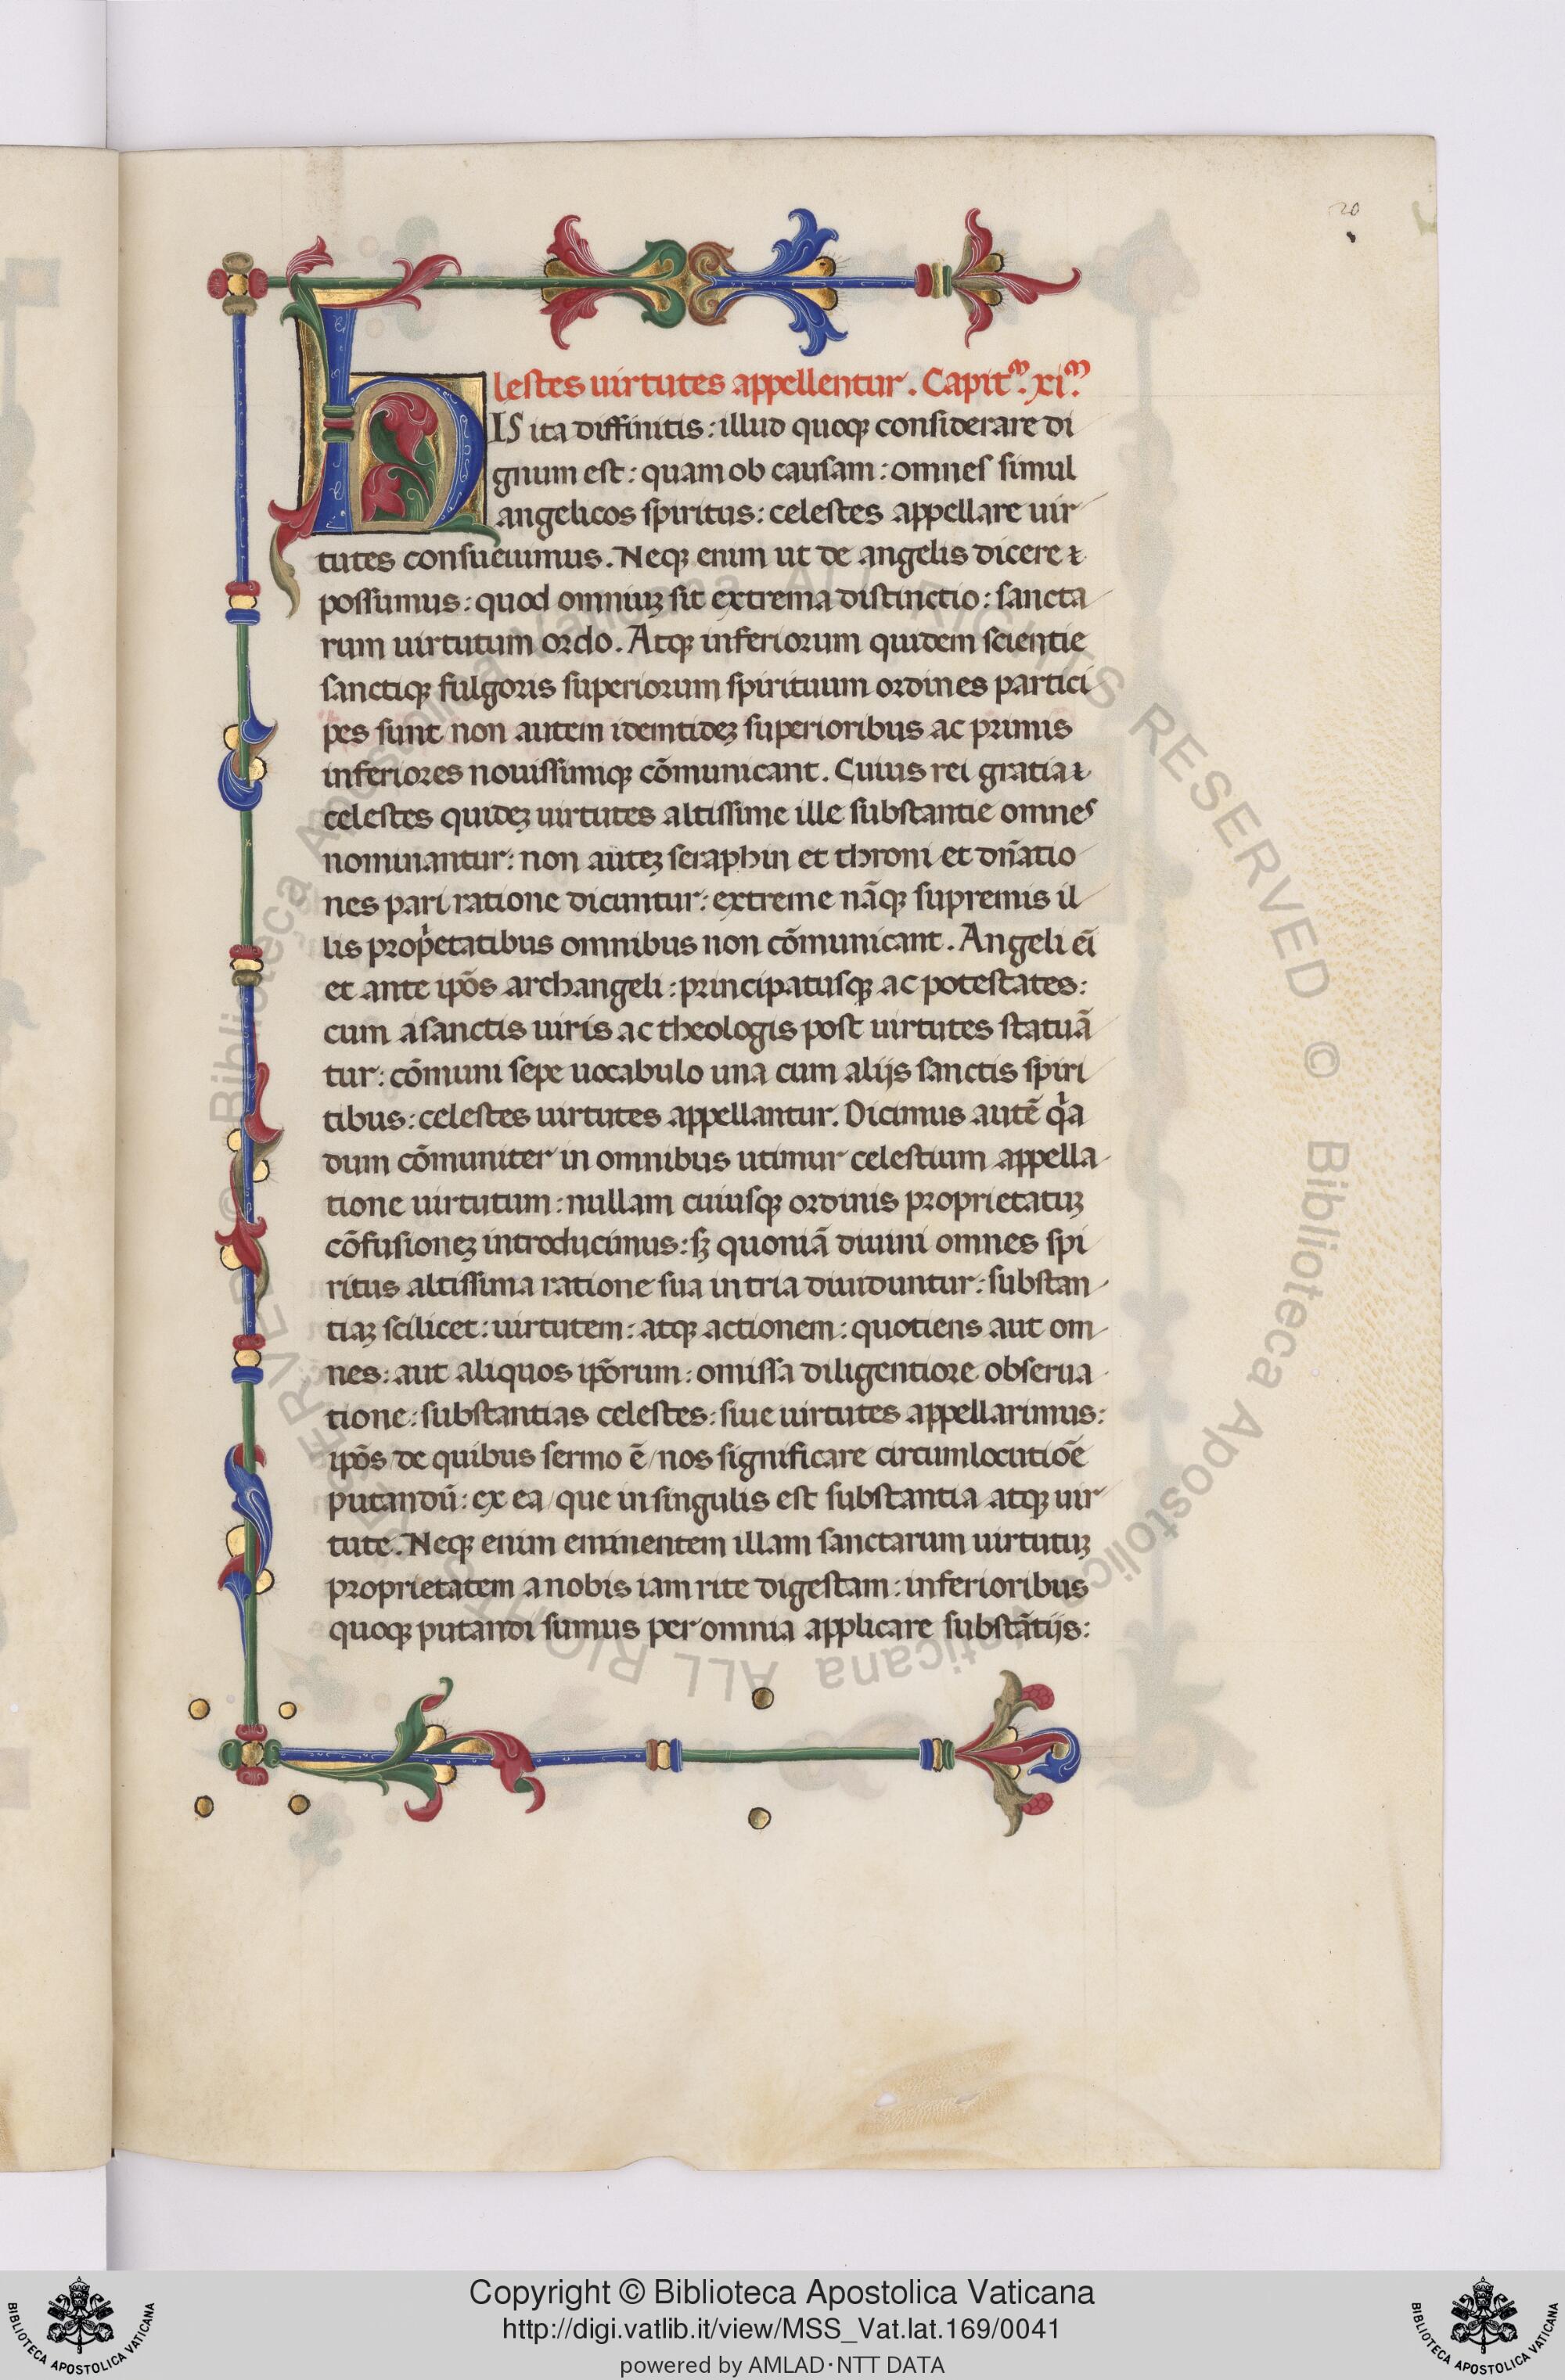 20
lestes uirtutes appellentur. Capitᵐ. xiᵐ.
HIS ita diffinitis: illud quoqꝫ considerare di
gnum est: quam ob causam: omnes simul
angelicos spiritus: celestes appellare uir
tutes consueuimus. Neqꝫ enim ut de angelis dicere ⁊
possumus: quod omniuꝫ sit extrema distinctio: sancta
rum uirtutum ordo. Atqꝫ inferiorum quidem scientie
sanctiqꝫ fulgoris superiorum spirituum ordines partici
pes sunt non autem idemtideꝫ superioribus ac primis
inferiores nouissimiqꝫ cōmunicant. Cuius rei gratia ⁊
celestes quideꝫ uirtutes altissime ille substantie omnes
nominantur: non auteꝫ seraphin et throni et dn̄atio
nes pari ratione dicuntur: extreme nāqꝫ supremis il
lis prop̍etatibus omnibus non cōmunicant. Angeli ei̅
et ante ip̄os archangeli: principatusqꝫ ac potestates:
cum a sanctis uiris ac theologis post uirtutes statuā
tur: cōmuni sepe uocabulo una cum alijs sanctis spiri
tibus: celestes uirtutes appellantur. Dicimus autē q̍a
dum cōmuniter in omnibus utimur celestium appella
tione uirtutum: nullam cuiusqꝫ ordinis proprietatuꝫ
cōfusioneꝫ introducimus: sꝫ quoniā diuini omnes spi
ritus altissima ratione sua in tria diuiduntur: substan
tiaꝫ scilicet: uirtutem: atqꝫ actionem: quotiens aut om
nes: aut aliquos ip̄orum: omissa diligentiore obserua
tione: substantias celestes: siue uirtutes appellarimus:
ip̄os de quibus sermo ē/ nos significare circumlocutiōe
putandū: ex ea/ que in singulis est substantia atqꝫ uir
tute. Neqꝫ enim eminentem illam sanctarum uirtutuꝫ
proprietatem a nobis iam rite digestam: inferioribus
quoqꝫ putandi sumus per omnia applicare substātijs:
© Biblioteca Apostolica Vaticana ALL RIGHTS RESERVED © Biblioteca Apostolica Vaticana ALL RIGHTS RESERVED
Copyright © Biblioteca Apostolica Vaticana
http://digi.vatlib.it/view/MSS_Vat.lat.169/0041
powered by AMLAD·NTT DATA
BIBLIOTECA APOSTOLICA VATICANA
BIBLIOTECA APOSTOLICA VATICANA